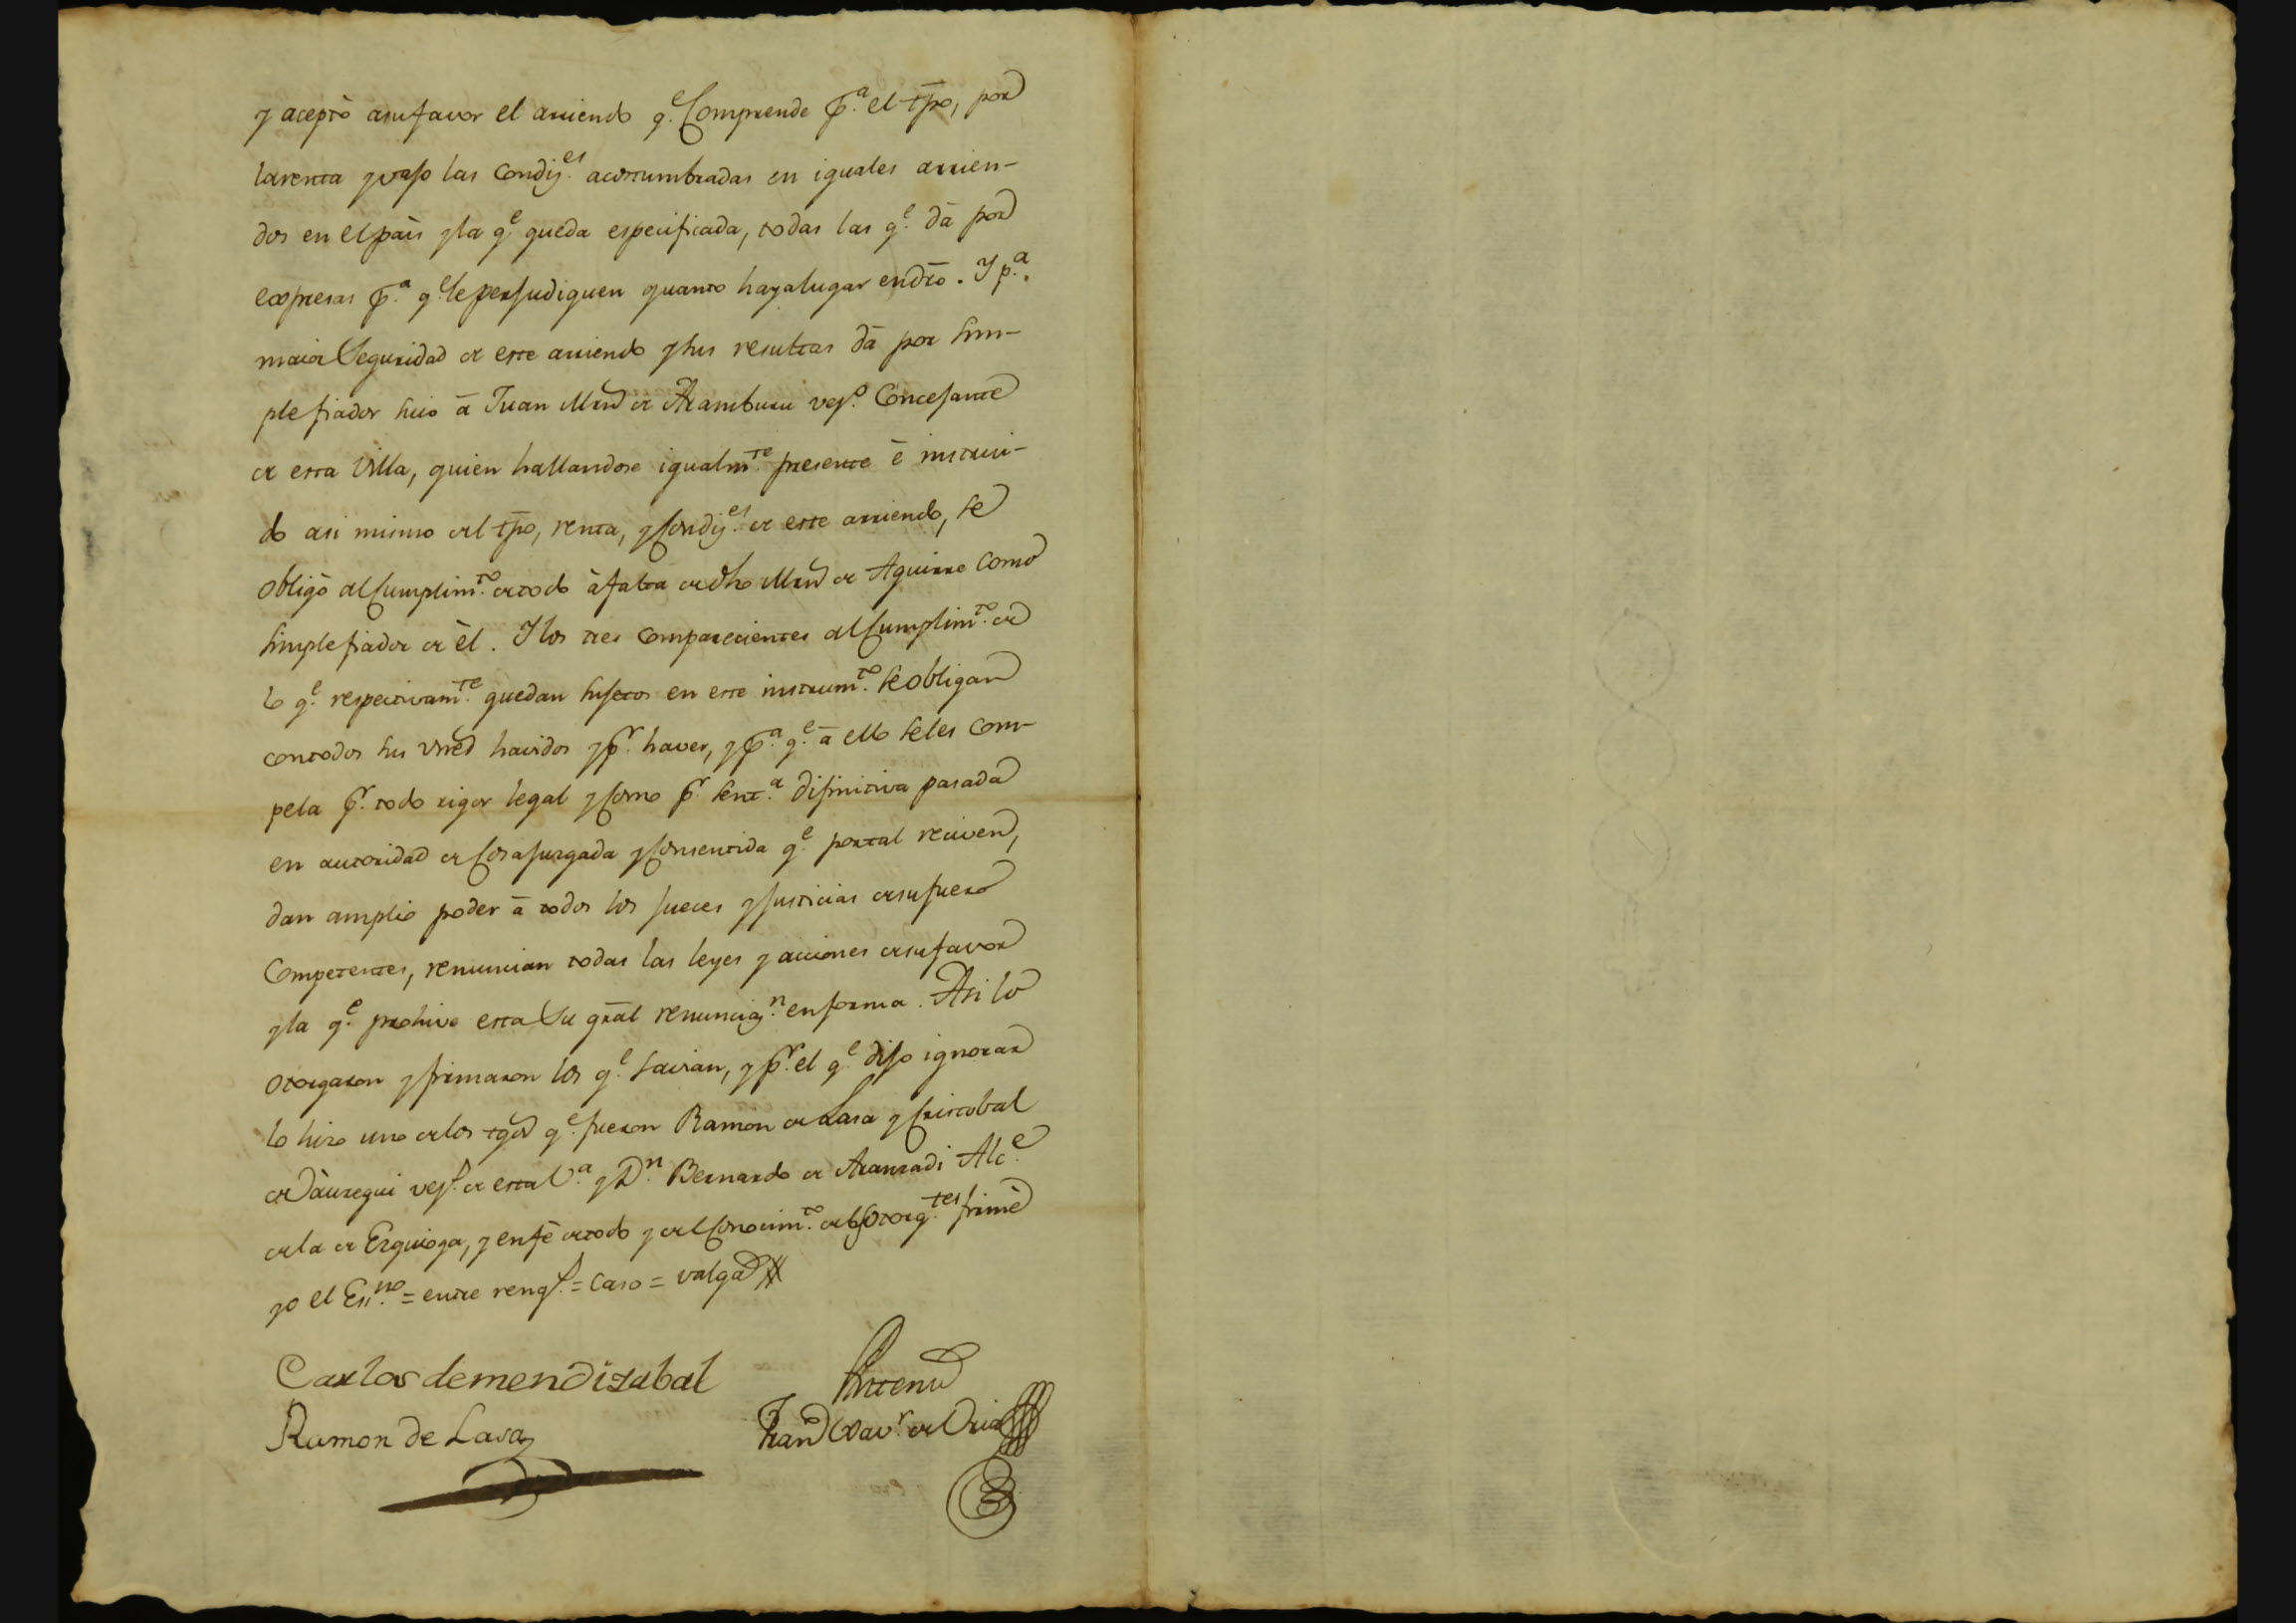 y aceptò asufavor el arriendo q.e Comprende p.a el tpō, por
larenta yvajo las Condiz.es acostumbradas en iguales arrien-
dos en elpais yla q.e queda especificada, todas las q.e dà por
expresas p.a q.e leperjudiquen quanto hayalugar endrō. Y p.a
maior Seguridad de este arriendo ysus resultas dà por sim-
ple fiador suio à Juan Mrn de Aramburu vez.o Concejante
de esta Villa, quien hallandose igualm.te presente è instrui-
do asi mismo del tpō, renta, yCondiz.es de este arriendo, se
obligò alCumplim.to detodo àfalta de dho Mrn de Aguirre como
simplefiador de èl. Ylos tres comparecientes alCumplim.to de
lo q.e respectivam.te quedan sujetos en este instrum.to seobligan
contodos sus vnes havidos yp.r haver, yp.a q.e à ello seles com-
pela p.r todo rigor legal yComo p.r sent.a difinitiva pasada
en autoridad de Cosajuzgada yConsentida q.e portal reciven,
dan amplio poder à todos los jueces yjusticias desufuero
Competentes, renuncian todas las leyes y acciones desufavor
yla q.e prohive esta Su gral renunciaz.n enforma. Asi lo
otorgaron yfirmaron los q.e savian, yp.r el q.e dijo ignorar
lo hizo uno delos tgos q.e fueron Ramon de Lasa yCristobal
de Jàuregui vez.s de estaV.a yD.n Bernardo de Aranzadi Alc.e
dela de Ezquioga, y enfè detodo y delConocim.to delosotorg.tes firmè
yo el Ess.no = entre reng.s = Caso = valga
Carlos demendizabal
Antemi
Ramon de Lasa
Fran.co Xav.r de Oria